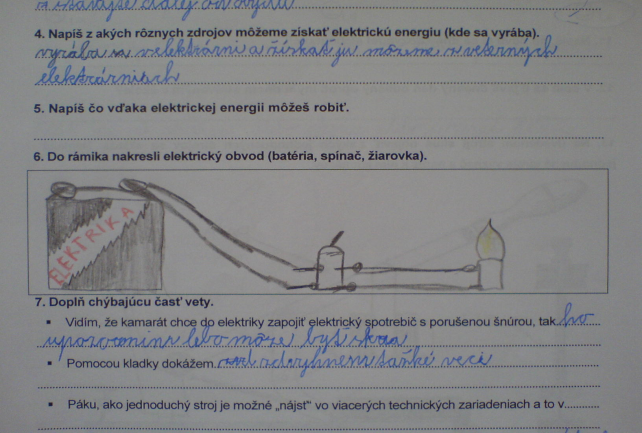 4. Napíš z akých rôznych zdrojov môžeme získať elektrickú energiu (kde sa vyrába).
vyrába sa v elektrárni a získať ju môžeme v veterných
elektrárniach
5. Napíš čo vďaka elektrickej energii môžeš robiť.
6. Do rámika nakresli elektrický obvod (batéria, spínač, žiarovka).
ELEKTRIKA
7. Doplň chýbajúcu časť vety.
▪ Vidím, že kamarát chce do elektriky zapojiť elektrický spotrebič s porušenou šnúrou, tak ho
upozorním lebo môže byť skrat
▪ Pomocou kladky dokážem zdvyhnem ťaňké veci
▪ Páku, ako jednoduchý stroj je možné „nájsť" vo viacerých technických zariadeniach a to v